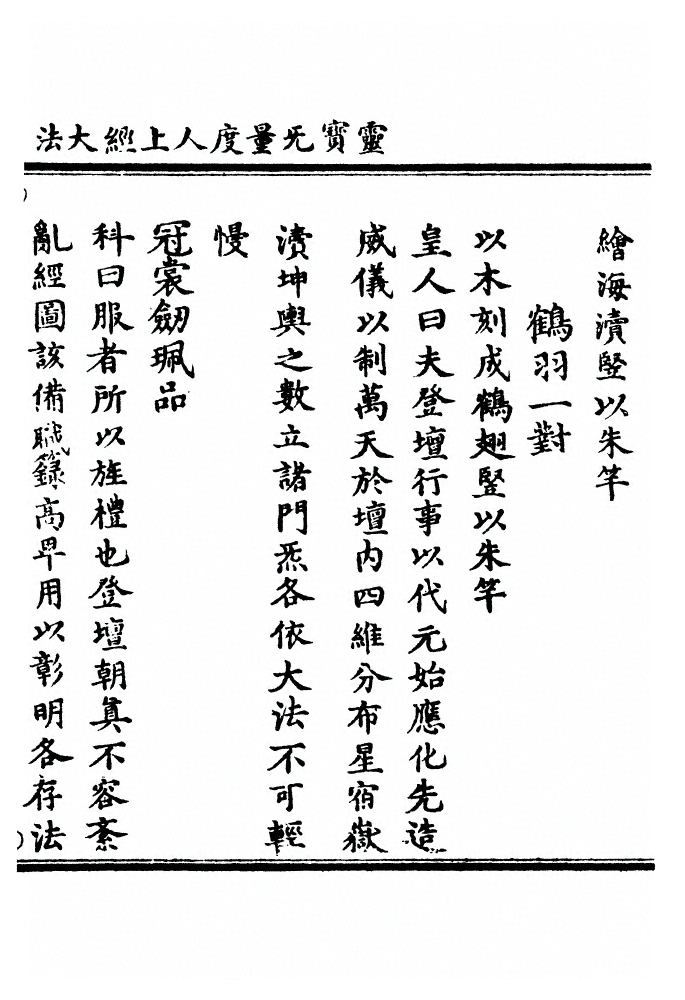 靈寶无量度人上經大法
繪海瀆竪以朱竿
鶴羽一對
以木刻成鶴翅竪以朱竿
皇人曰夫登壇行事以代元始應化先造
威儀以制萬天於壇内四維分布星宿嶽
瀆坤輿之數立諸門炁各依大法不可輕
慢
冠裳劒珮品
科曰服者所以旌禮也登壇朝真不容紊
亂經圖該備職籙高卑用以彰明各存法